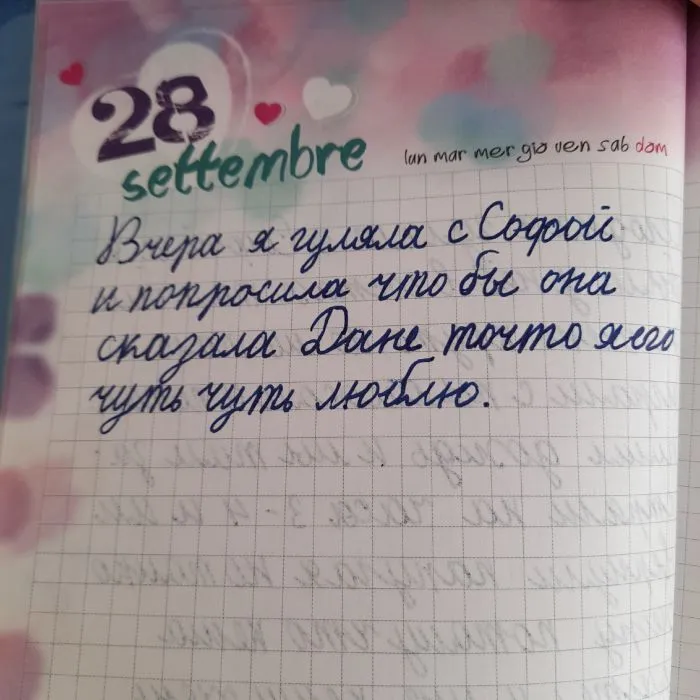 28
settembre
lun mar mer gio ven sab dom
Вчера я гуляла с Софой
и попросила что бы она
сказала Дане точто я его
чуть чуть люблю.